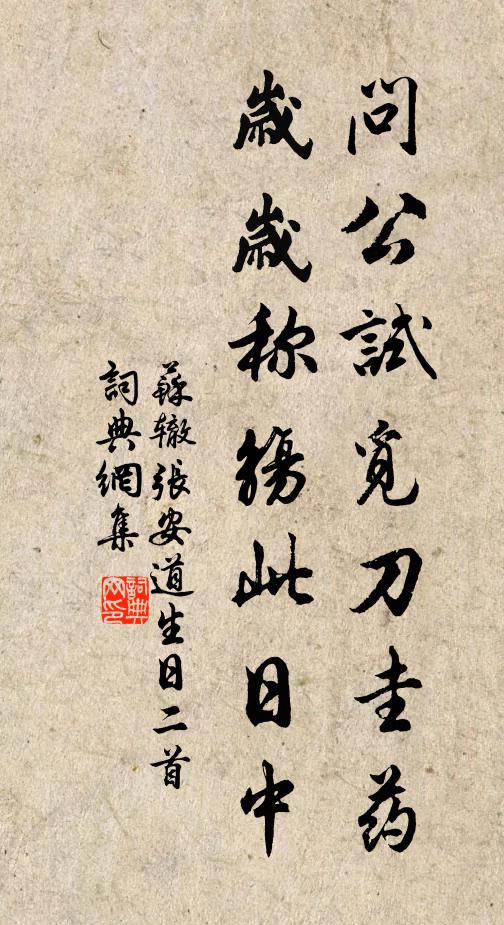 問公試覓刀圭药
歲歲称觴此日中
蘇辙張安道生日二首
詞典網集
詞典
网印